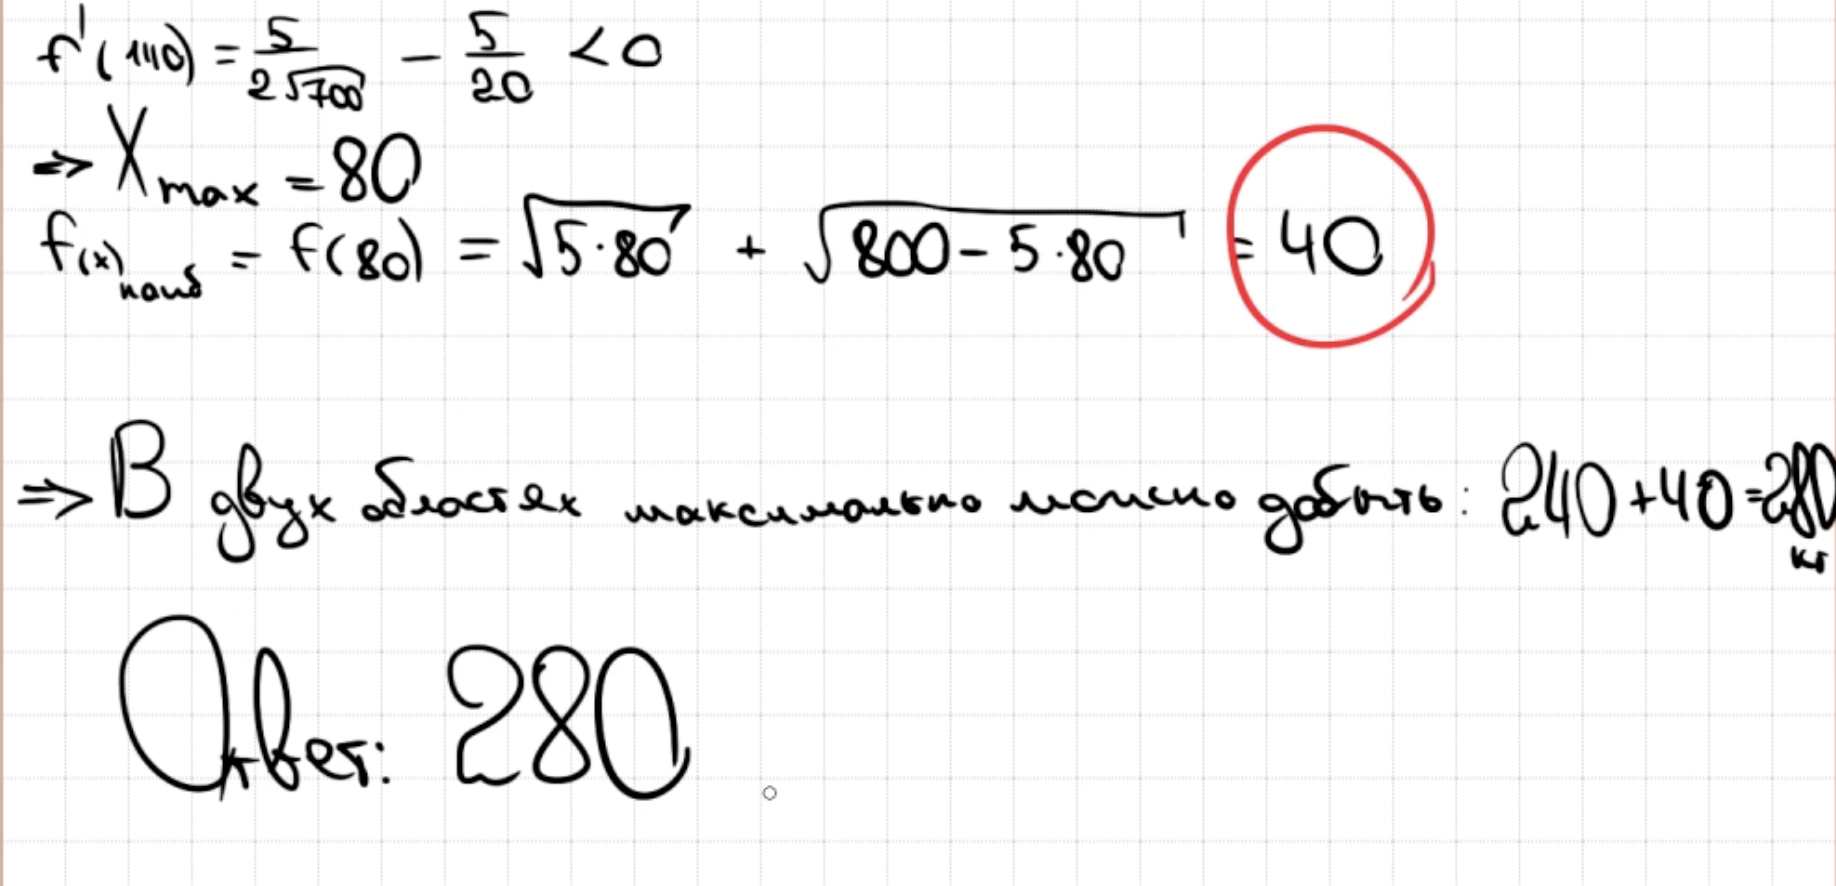 f'(140) = 5/(2√700) - 5/20 < 0
⇒ Xmax = 80
f(x)наиб = f(80) = √(5·80) + √(800-5·80) = 40
⇒ В двух областях максимально можно добыть: 240+40=280 кг
Ответ: 280